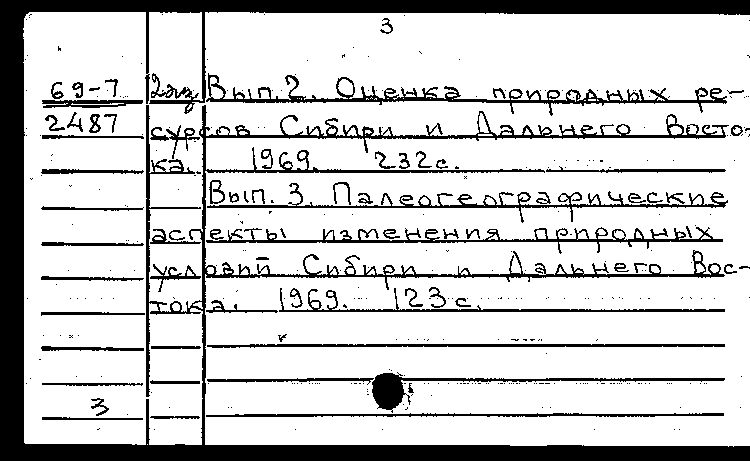 3
69-7 2экз Вып. 2. Оценка природных ре-
2487 сурсов Сибири и Дальнего Восто-
ка. 1969. 232 с.
Вып. 3. Палеогеографические
аспекты изменения природных
условий Сибири и Дальнего Вос-
тока. 1969. 123 с.
3